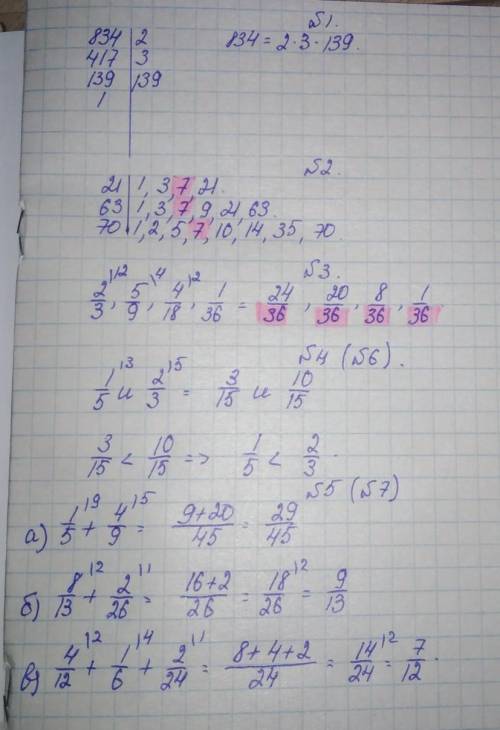 №1.
834 | 2    834 = 2·3·139.
417 | 3
139 | 139
1
№2.
21 | 1, 3, 7, 21.
63 | 1, 3, 7, 9, 21, 63.
70 | 1, 2, 5, 7, 10, 14, 35, 70.
№3.
2/3\12, 5/9\4, 4/18\2, 1/36 = 24/36, 20/36, 8/36, 1/36.
№4 (№6).
1/5\3 и 2/3\5 = 3/15 и 10/15
3/15 < 10/15 => 1/5 < 2/3.
№5 (№7)
а) 1/5\9 + 4/9\5 = (9+20)/45 = 29/45
б) 8/13\2 + 2/26\1 = (16+2)/26 = 18/26\2 = 9/13
в) 4/12\2 + 1/6\4 + 2/24\1 = (8+4+2)/24 = 14/24\2 = 7/12.